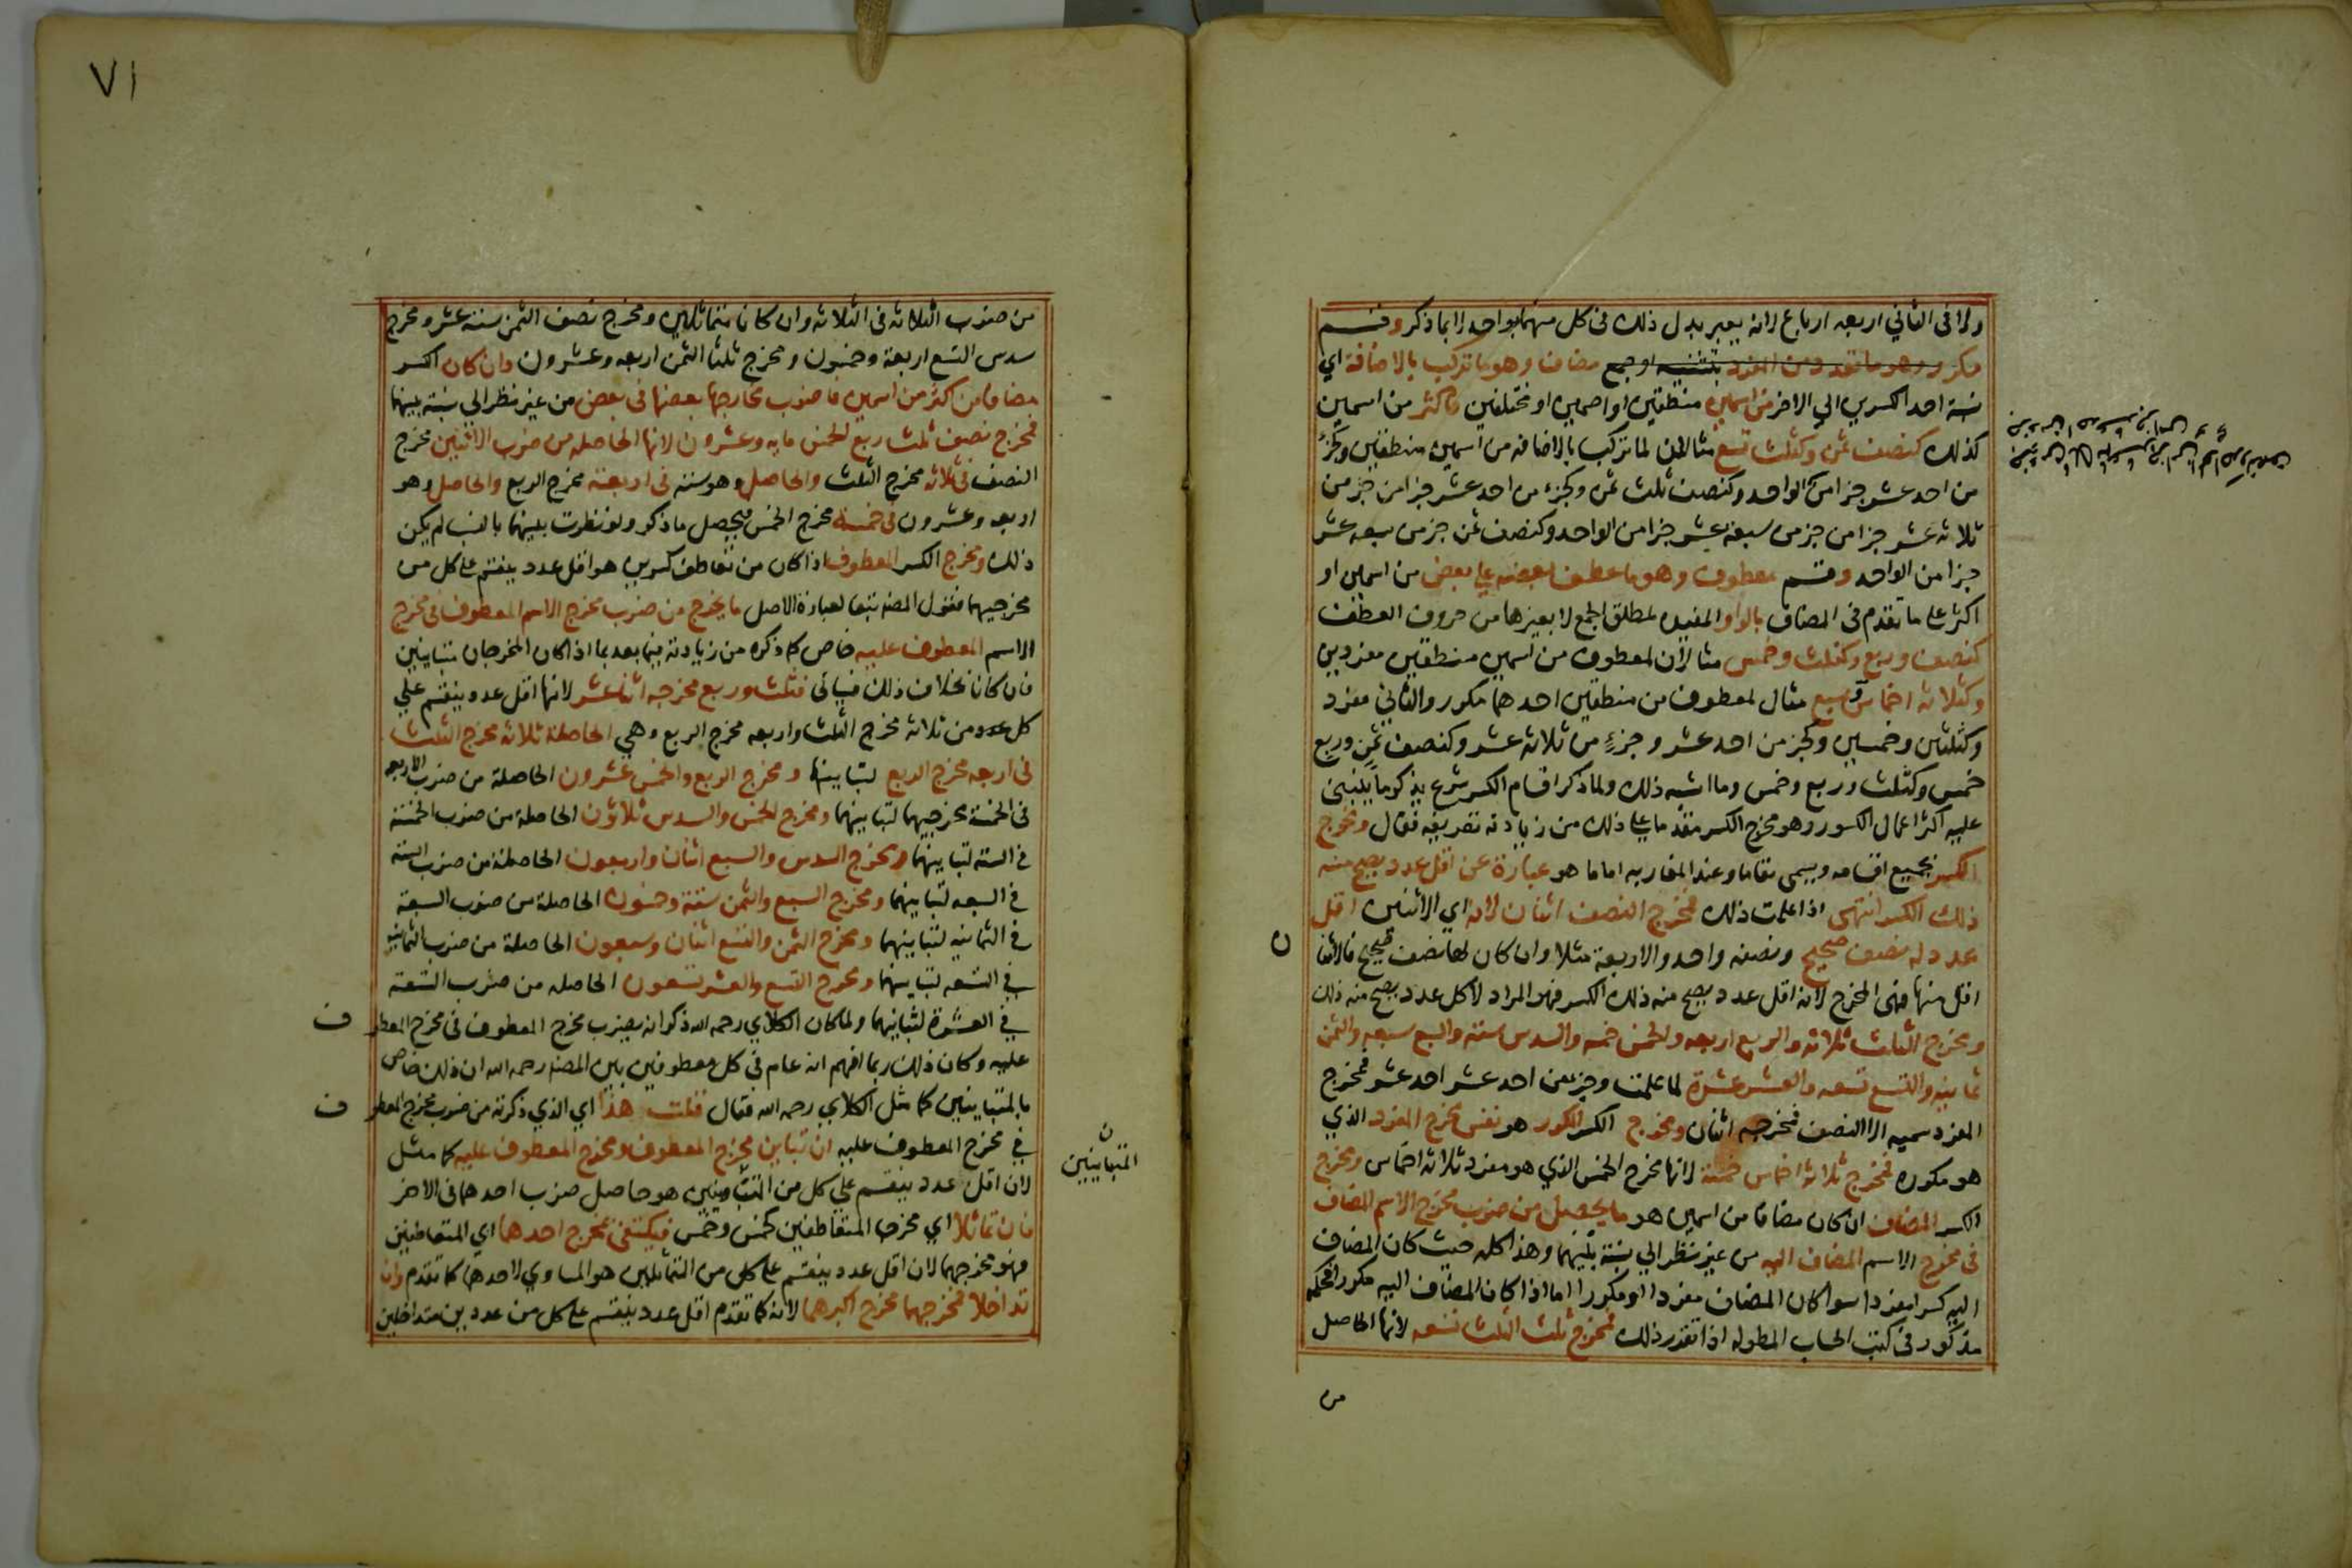 ولا في الثاني اربعه ارباع لانه يعبر بدل ذلك في كل منهما بواحد لا بما ذكر وقسم
مكرر وهو ما تعدد من المفرد بتثنيه او جمع مضاف وهو ما تركب بالاضافة اي
نسبة احد الكسرين الي الاخر من اسمين منطقين او اصمين او مختلفين واكثر من اسمين
كذلك كنصف ثمن وكثلث تسع مثالان لما تركب بالاضافه من اسمين منطقين وكجزء
من احد عشر جزا من الواحد وكنصف ثلث ثمن وكجزء من احد عشر جزا من جز من
ثلاثه عشر جزا من جز من سبعة عشر جزا من الواحد وكنصف ثمن جز من سبعه عشر
جزا من الواحد وقسم معطوف وهو ما عطف بعضه علي بعض من اسمين او
اكثر على ما تقدم في المضاف بالواو المفيده لمطلق الجمع لا بغيرها من حروف العطف
كنصف وربع وكثلث وخمس مثالان لمعطوف من اسمين منطقين مفردين
وكثلاثه اخماس وسبع مثال لمعطوف من منطقين احدهما مكرر والثاني مفرد
وكثلثين وخمسين وكجز من احد عشر وجزء من ثلاثة عشر وكنصف ثمن وربع
خمس وكثلث وربع وخمس وما اشبه ذلك ولما ذكر اقسام الكسر شرع يذكر ما ينبني
عليه اكثر اعمال الكسور وهو مخرج الكسر مقدما على ذلك من زيادته تعريفه فقال ومخرج
الكسر بجميع اقسامه ويسمى مقاما وعند المغاربه اماما هو عبارة عن اقل عدد يصح منه
ذلك الكسر انتهى اذا علمت ذلك فمخرج النصف اثنان لانه اي الاثنين اقل
عدد له نصف صحيح ونصفه واحد والاربعة مثلا وان كان لها نصف صحيح فالاثنا
ن
اقل منها فهي المخرج لانه اقل عدد يصح منه ذلك الكسر فهو المراد لا كل عدد يصح منه ذلك
ومخرج الثلث ثلاثه والربع اربعه والخمس خمسه والسدس سته والسبع سبعه والثمن
ثمانيه والتسع تسعه والعشر عشرة لما علمت وجزء من احد عشر احد عشر فمخرج
المفرد سميه الا النصف فمخرجه اثنان ومخرج الكسر المكرر هو نفس مخرج المفرد الذي
هو مكرره فمخرج ثلاثة اخماس خمسة لانها مخرج الخمس الذي هو مفرد ثلاثه اخماس ومخرج
الكسر المضاف ان كان مضافا من اسمين هو ما يحصل من ضرب مخرج الاسم المضاف
في مخرج الاسم المضاف اليه من غير نظر الي نسبة بينهما وهذا كله حيث كان المضاف
اليه كسرا مفردا سوا كان المضاف مفردا او مكررا اما اذا كان المضاف اليه مكررا فحكمه
مذكور في كتب الحساب المطوله اذا تقرر ذلك فمخرج ثلث الثلث تسعه لانها الحاصل
من
٧١
من ضرب الثلاثه في الثلاثه وان كانا متماثلين ومخرج نصف الثمن ستة عشر ومخرج
سدس التسع اربعة وخمسون ومخرج ثلثا الثمن اربعه وعشرون وان كان الكسر
مضافا من اكثر من اسمين فاضرب مخارجها بعضها في بعض من غير نظر الي نسبة بينهما
فمخرج نصف ثلث ربع الخمس مايه وعشرون لانها الحاصله من ضرب الاثنين مخرج
النصف في ثلاثه مخرج الثلث والحاصل وهو سته في اربعة مخرج الربع والحاصل وهو
اربعه وعشرون في خمسة مخرج الخمس فيحصل ما ذكر ولو نظرت بينهما بالنسب لم يكن
ذلك ومخرج الكسر المعطوف اذا كان من تعاطف كسرين هو اقل عدد ينقسم على كل من
مخرجيهما فقول المصنف تبعا لعبارة الاصل ما يخرج من ضرب مخرج الاسم المعطوف في مخرج
الاسم المعطوف عليه خاص كما ذكره من زيادته فيما بعد بما اذا كان المخرجان متباينين
فان كانا بخلاف ذلك فسيأتي فثلث وربع مخرجه اثنا عشر لانها اقل عدد ينقسم علي
كل عدد من ثلاثه مخرج الثلث واربعه مخرج الربع وهي الحاصلة ثلاثة مخرج الثلث
في اربعه مخرج الربع لتباينهما ومخرج الربع والخمس عشرون الحاصلة من ضرب الاربعه
في الخمسة مخرجيهما لتباينهما ومخرج الخمس والسدس ثلاثون الحاصلة من ضرب الخمسة
في الستة لتباينهما ومخرج السدس والسبع اثنان واربعون الحاصلة من ضرب الستة
في السبعه لتباينهما ومخرج السبع والثمن ستة وخمسون الحاصلة من ضرب السبعة
في الثمانيه لتباينهما ومخرج الثمن والتسع اثنان وسبعون الحاصلة من ضرب الثمانيه
في التسعه لتباينهما ومخرج التسع والعشر تسعون الحاصله من ضرب التسعة
في العشرة لتباينهما ولما كان الكلاي رحمه الله ذكر انه يضرب مخرج المعطوف في مخرج المعطو
ف
عليه وكان ذلك ربما افهم انه عام في كل معطوفين بين المصنف رحمه الله ان ذلك خاص
بالمتباينين كما مثل الكلاي رحمه الله فقال قلت هذا اي الذي ذكرته من ضرب مخرج المعطو
ف
في مخرج المعطوف عليه ان تباين مخرج المعطوف ومخرج المعطوف عليه كما مثل
لان اقل عدد ينقسم علي كل من المتباينين هو حاصل ضرب احدهما في الاخر
ن
المتباينين
فان تماثلا اي مخرجا المتعاطفين كخمس وخمس فيكتفي بمخرج احدهما اي المتعاطفين
فهو مخرجهما لان اقل عدد ينقسم على كل من المتماثلين هو المساوي لاحدهما كما تقدم وان
تداخلا فمخرجهما مخرج اكبرهما لانه كما تقدم اقل عدد ينقسم على كل من عددين متداخلين